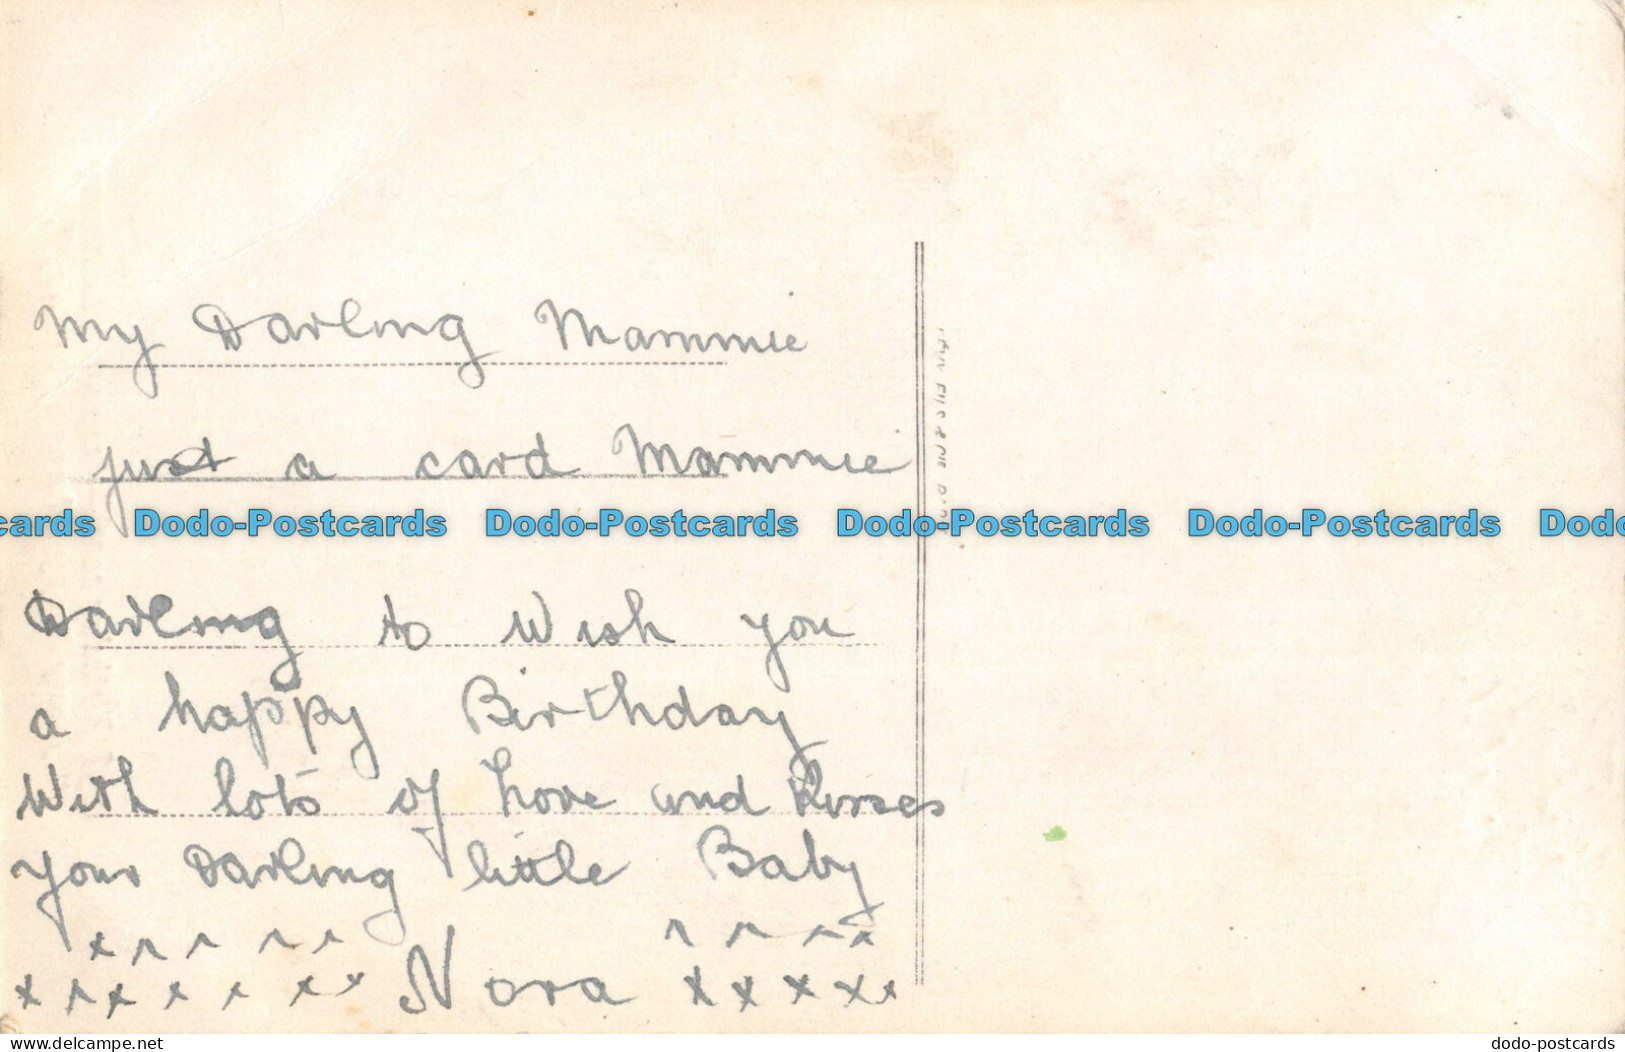 My Darling Mammie
just a card Mammie
cards Dodo-Postcards Dodo-Postcards Dodo-Postcards Dodo-Postcards Dodo
Darling to Wish you
a happy Birthday
With lots of love and Kisses
your Darling little Baby
x x x x x x x x x
x x x x x x x Nora x x x x x
www.delcampe.net
dodo-postcards